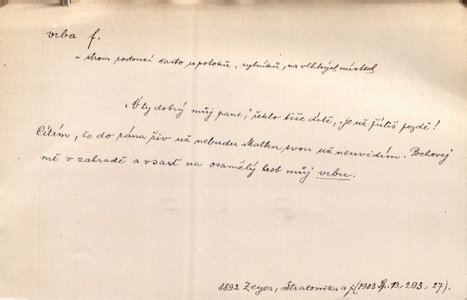 vrba f.
= strom rostoucí často u potoků, rybníků, na vlhkých místech
„Ó ty dobrý můj pane," řeklo tiše dítě, „je už příliš pozdě!
Cítím, že do rána živ už nebudu. Matku svou už neuvidím. Pochovej
mě v zahradě a vsaď na osamělý hrob můj vrbu.
1892 Zeyer, Stratonika a j. (1903 Sp. 13, 293, 27).